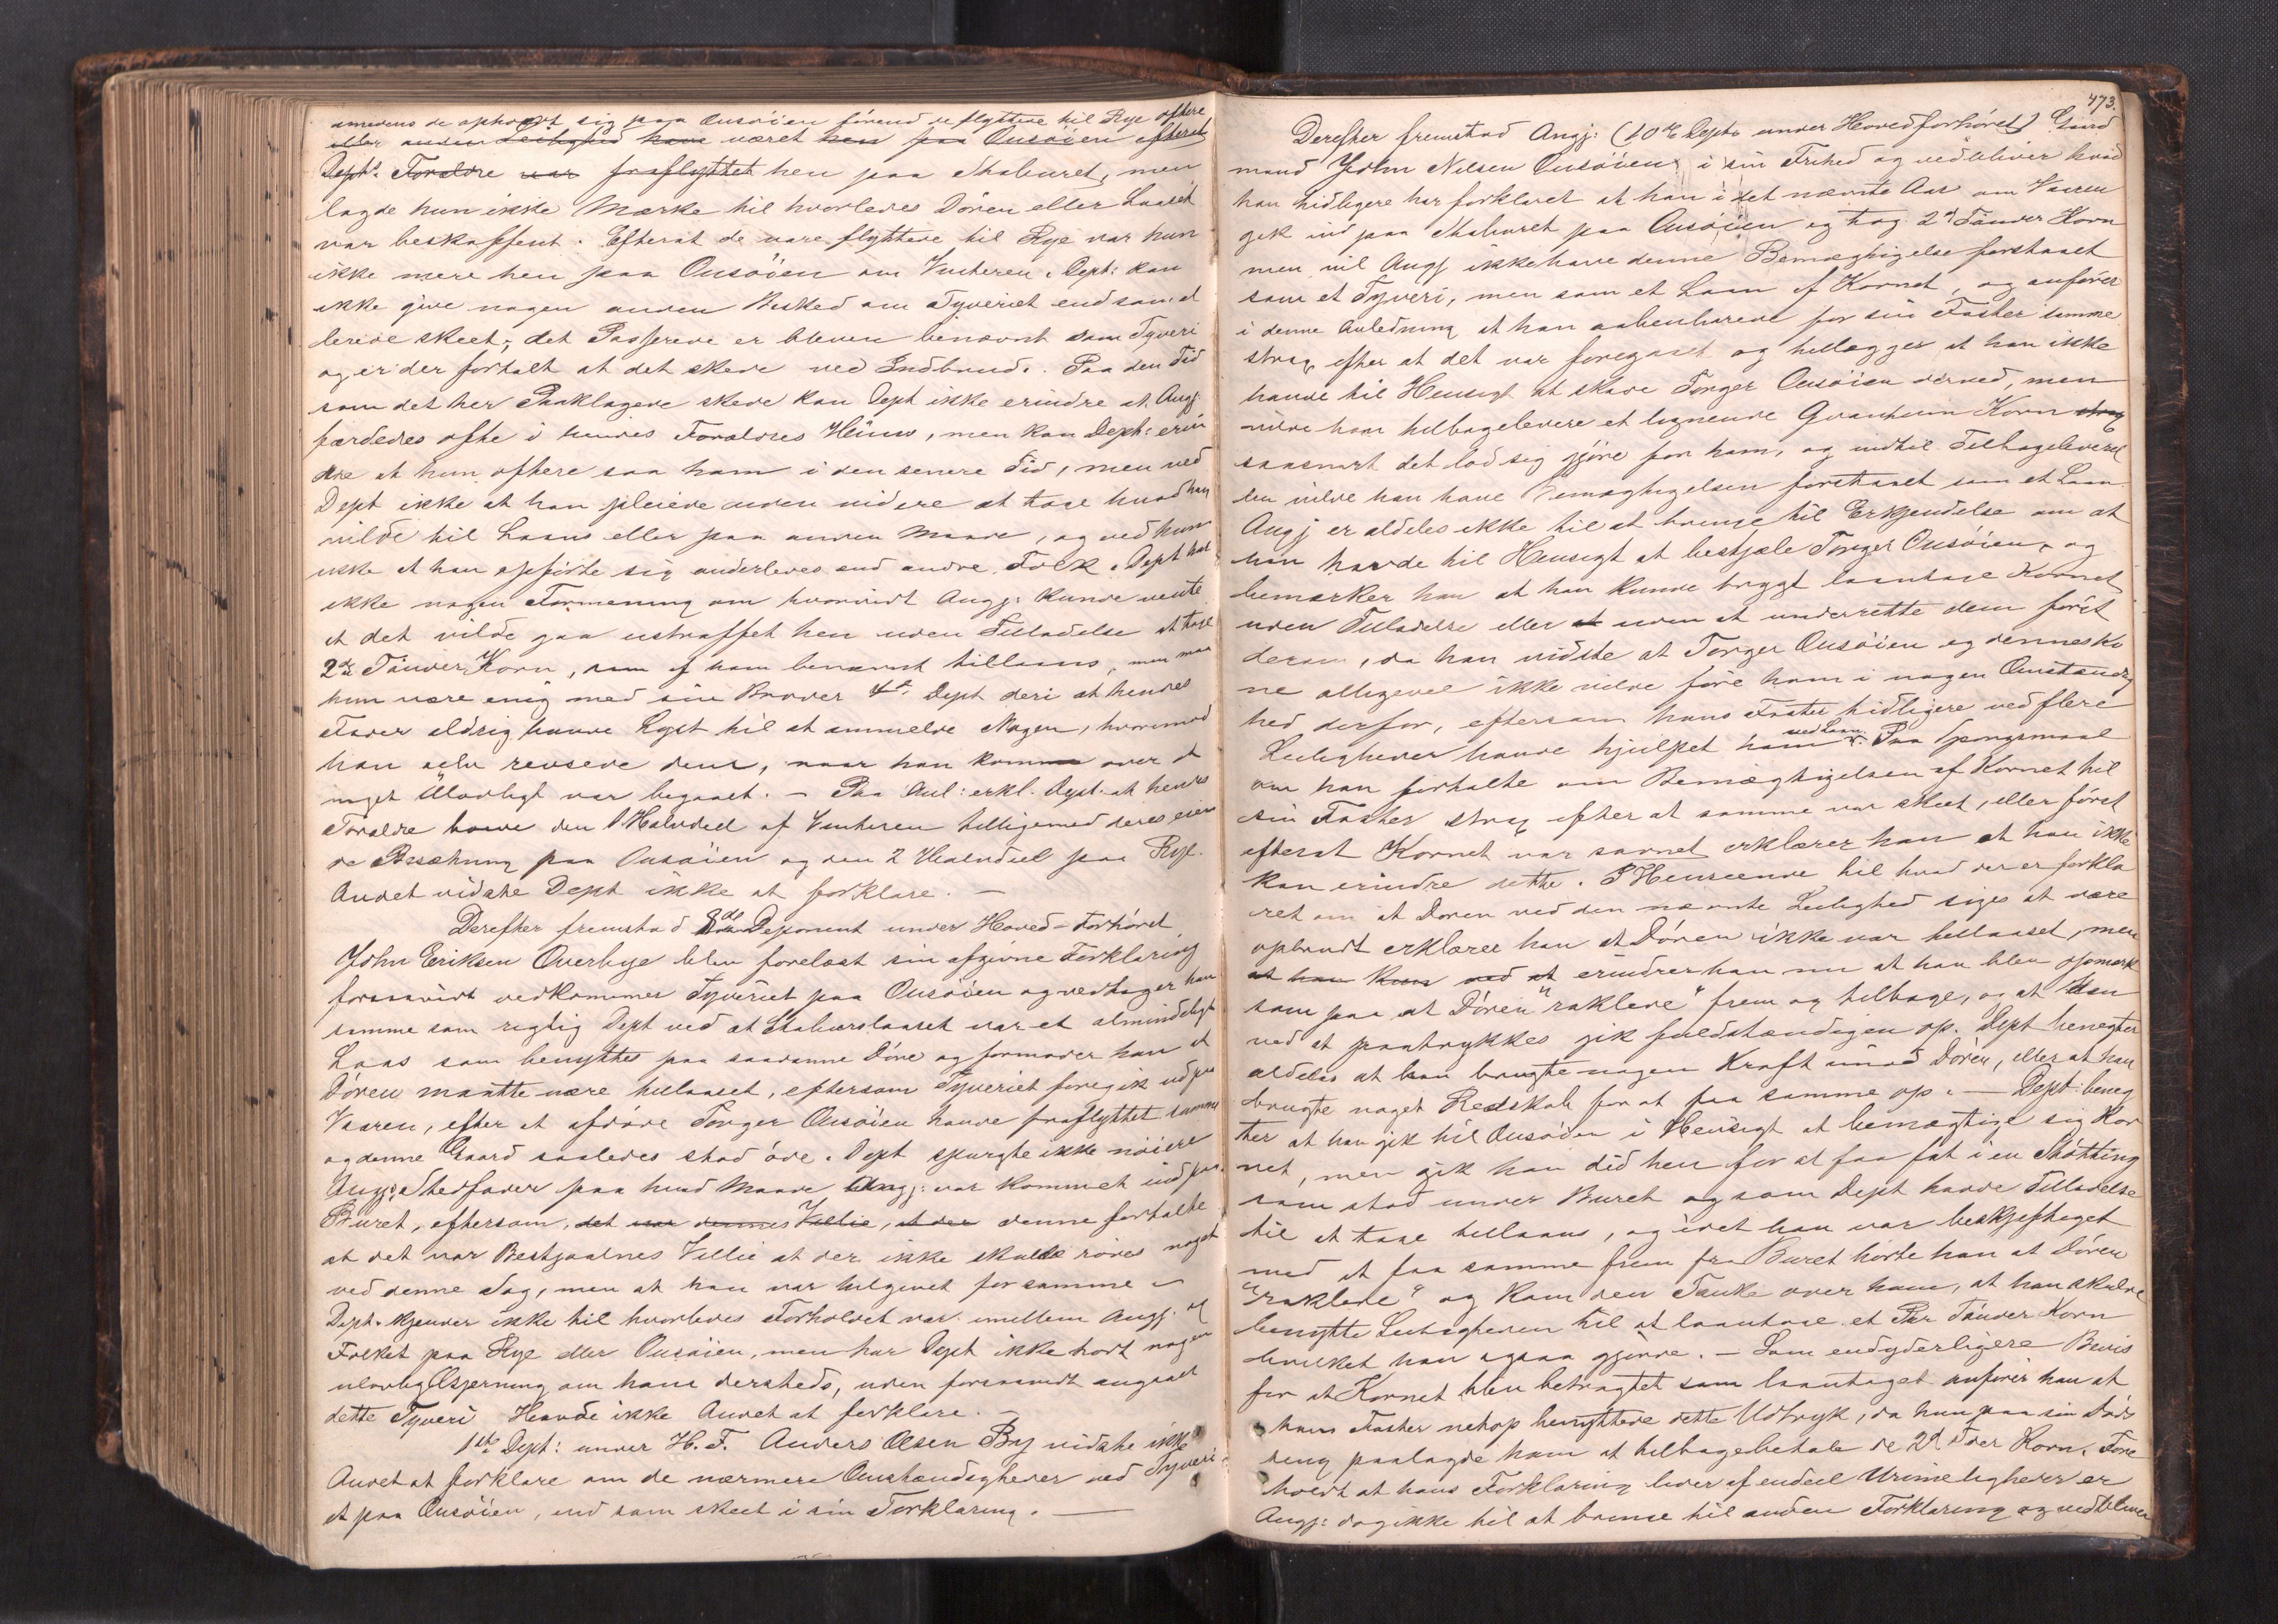 amedens de opholdt sig paa Onsöien förend de flyttede til Rye oftere
eller anden Leilighed have været hen paa Onsöien efterat
Dept<sup>s</sup> Forældre var fraflyttet hen paa Staburet, men
lagde hun ikke Mærke til hvorledes Dören eller Laaset
var beskaffent. Efterat de vare flyttede til Rye var hun
ikke mere hen paa Onsöien om Vinteren. Dept: kan
ikke give nogen anden Besked om Tyveriet end som al
lerede skeet; det Passerede er bleven benævnt som Tyveri
og er der fortalt at det skede ved Indbrud. Paa den Tid
som det her Paaklagede skede kan Dept ikke erindre at Angj:
færdedes ofte i hendes Forældres Huus, men kan Dept: erin
dre at hun oftere saa ham i den senere Tid, men ved
Dept ikke at han pleiede uden videre at tage hvad han
vilde til Laans eller paa anden Maade, og ved hun
ikke at han opförte sig anderledes end andre Folk. Dept har
ikke nogen Formening om hvorvidt Angj: kunde vente
at det vilde gaa ustraffet hen uden Tilladelse at tage
2<sup>de</sup> Tönder Korn, som af ham benævnt tillaans, men maa
hun være enig med sin Broder 4<sup>de</sup> Dept deri at hendes
Fader aldrig havde Lyst til at anmelde Nogen, hvorimod
han selv revsede dem, naar han kom over at
noget Ulovligt var begaaet. — Paa Anl: erkl. Dept. at hendes
Forældre boede den 1 Halvdeel af Vinteren tilligemed deres eien
de Besætning paa Onsöien og den 2 Halvdeel paa Rye.
Andet vidste Dept ikke at forklare. —
Derefter fremstod 8<sup>de</sup> Deponent under Hoved-Forhöret
John Eriksen Overbye blev forelæst sin afgivne Forklaring
forsaavidt vedkommer Tyveriet paa Onsöien og vedtager han
samme som rigtig Dept ved at Stabursaaset var et almindeligt
Laas som benyttes paa saadanne Döre og formoder han at
Dören maatte være tillaaset, eftersom Tyveriet foregik ud paa
Vaaren, efter at afdöde Torger Onsöien havde fraflyttet samme
og denne Gaard saaledes stod öde. Dept spurgte ikke nöiere
Angj:s Stedfader paa hvad Maade Angj: var kommet ind paa
Buret, eftersom, det var dennes Villie, at der denne fortalte
at det var Bestjaalnes Villie at der ikke skulde röres noget
ved denne Sag, men at han var tilgivet for samme –
Dept. kjender ikke til hvorledes Forholdet var imellem Angj. og
Folket paa Rye eller Onsöien, men har Dept ikke hört nogen
ulovlig Gjerning om hans dersteds, uden forsaavidt angaaer
dette Tyveri Havde ikke Andet at forklare. —
1<sup>ste</sup> Dept: under H. F. Anders Olsen By vidste ikke
Andet at forklare om de nærmere Omstændigheder ved Tyveri
et paa Onsöien, end som skeet i sin Forklaring. —
473.
Derefter fremstod Angj: (10<sup>de</sup> Dept. under Hovedforhöret) Gaard
mand John Nilsen Onsöien i sin Frihed og vedbliver hvad
han tidligere har forklaret at han i det nævnte Aar om Vaaren
gik ind paa Staburet paa Onsöien og tog 2<sup>de</sup> Tönder Korn
men vil Angj ikke have denne Bemægtigelse forstaaet
som et Tyveri, men som et Laan af Kornet, og anförer
i denne Anledning at han aabenbarede for sin Faster samme
strax efter at det var foregaaet og tillægger at han ikke
havde til Hensigt at skade Torger Onsöien derved, men
vilde han tilbagelevere et lignende Qvantum Korn strax
saasnart det lod sig gjöre for ham, og indtil Tilbageleverel
sen vilde han have Bemægtigelsen forstaaet som et Laan
Angj er aldeles ikke til at bringe til Erkjendelse om at
han havde til Hensigt at bestjæle Torger Onsöien, og
bemærker han at han kunde trygt laantage Kornet
uden Tilladelse eller at uden at underrette dem först
derom, da han vidste at Torger Onsöien og dennes Ko
ne alligevel ikke vilde före ham i nogen Omstændig
hed derfor, eftersom hans Faster tidligere ved flere
Leiligheder havde hjulpet ham ved Laan. Paa Spörgsmaal
om han fortalte om Bemægtigelsen af Kornet til
sin Faster strax efter at samme var skeet, eller först
efterat Kornet var savnet erklærer han at han ikke
kan erindre dette. I Henseende til hvad der er forkla
ret om at Dören ved den nævnte Leilighed siges at være
opbrudt erklærer han at Dören ikke var tillaaset, men
at han kun ved at erindrer han nu at han blev opmærk
som paa at Dören "raklede" frem og tilbage, og at den
ved at paatrykkes gik fuldstændigen op. Dept benegter
aldeles at han brugte nogen Kraft imod Dören, eller at han
brugte noget Redskab for at faa samme op. — Dept: beneg
ter at han gik til Onsöien i Hensigt at bemægtige sig Kor
net, men gik han did hen for at faa fat i en Stötting
som stod under Buret og som Dept havde Tilladelse
til at tage tillaans, og idet han var beskjeftiget
med at faa samme frem fra Buret hörte han at Dören
"raklede" og kom den Tanke over ham, at han skulde
benytte Leiligheden til at laantage et Par Tönder Korn
hvilket han ogsaa gjorde. — Som endyderligere Beviis
for at Kornet blev betragtet som laantaget anförer han at
hans Faster netop benyttede dette Udtryk, da hun paa sin Döds
seng paalagde ham at tilbagebetale de 2<sup>de</sup> Tdr Korn. Fore
holdt at hans Forklaring lider af endeel Urimeligheder er
Angj: dog ikke til at bringe til anden Forklaring og vedbliver